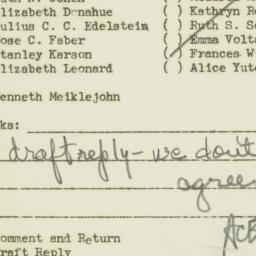 lizabeth Donahue ( ) Kathryn R
ulius C. C. Edelstein ( ) Ruth S. S
ose C. Faber ( ) Emma Volt
tanley Karson ( ) Frances W
lizabeth Leonard ( ) Alice Yut
enneth Meiklejohn
ks:
draft reply - we don't
agree
ACE
omment and Return
raft Reply